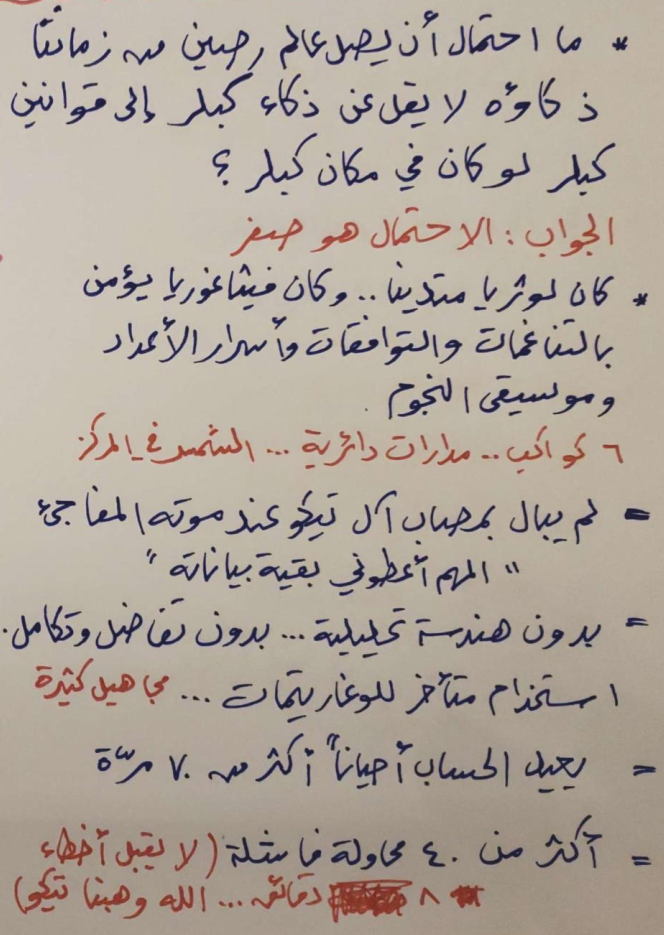 * ما احتمال أن يصل عالم رصين من زماننا
ذكاؤه لا يقل عن ذكاء كبلر إلى قوانين
كبلر لو كان في مكان كبلر ؟
الجواب : الاحتمال هو صفر
* كان لوثريا متدينا .. وكان فيثاغوريا يؤمن
بالتناغمات والتوافقات وأسرار الأعداد
وموسيقى النجوم .
٦ كواكب .. مدارات دائرية ... الشمس في المركز
= لم يبال بمصاب آل تيكو عند موته المفاجئ
" المهم أعطوني بقية بياناته "
= بدون هندسة تحليلية ... بدون تفاضل وتكامل .
استخدام متأخر للوغاريتمات ... مجاهيل كثيرة
= يعيد الحساب أحياناً أكثر من ٧٠ مرّة
= أكثر من ٤٠ محاولة فاشلة ( لا يقبل أخطاء
٨ دقائق ... الله وهبنا تيكو )